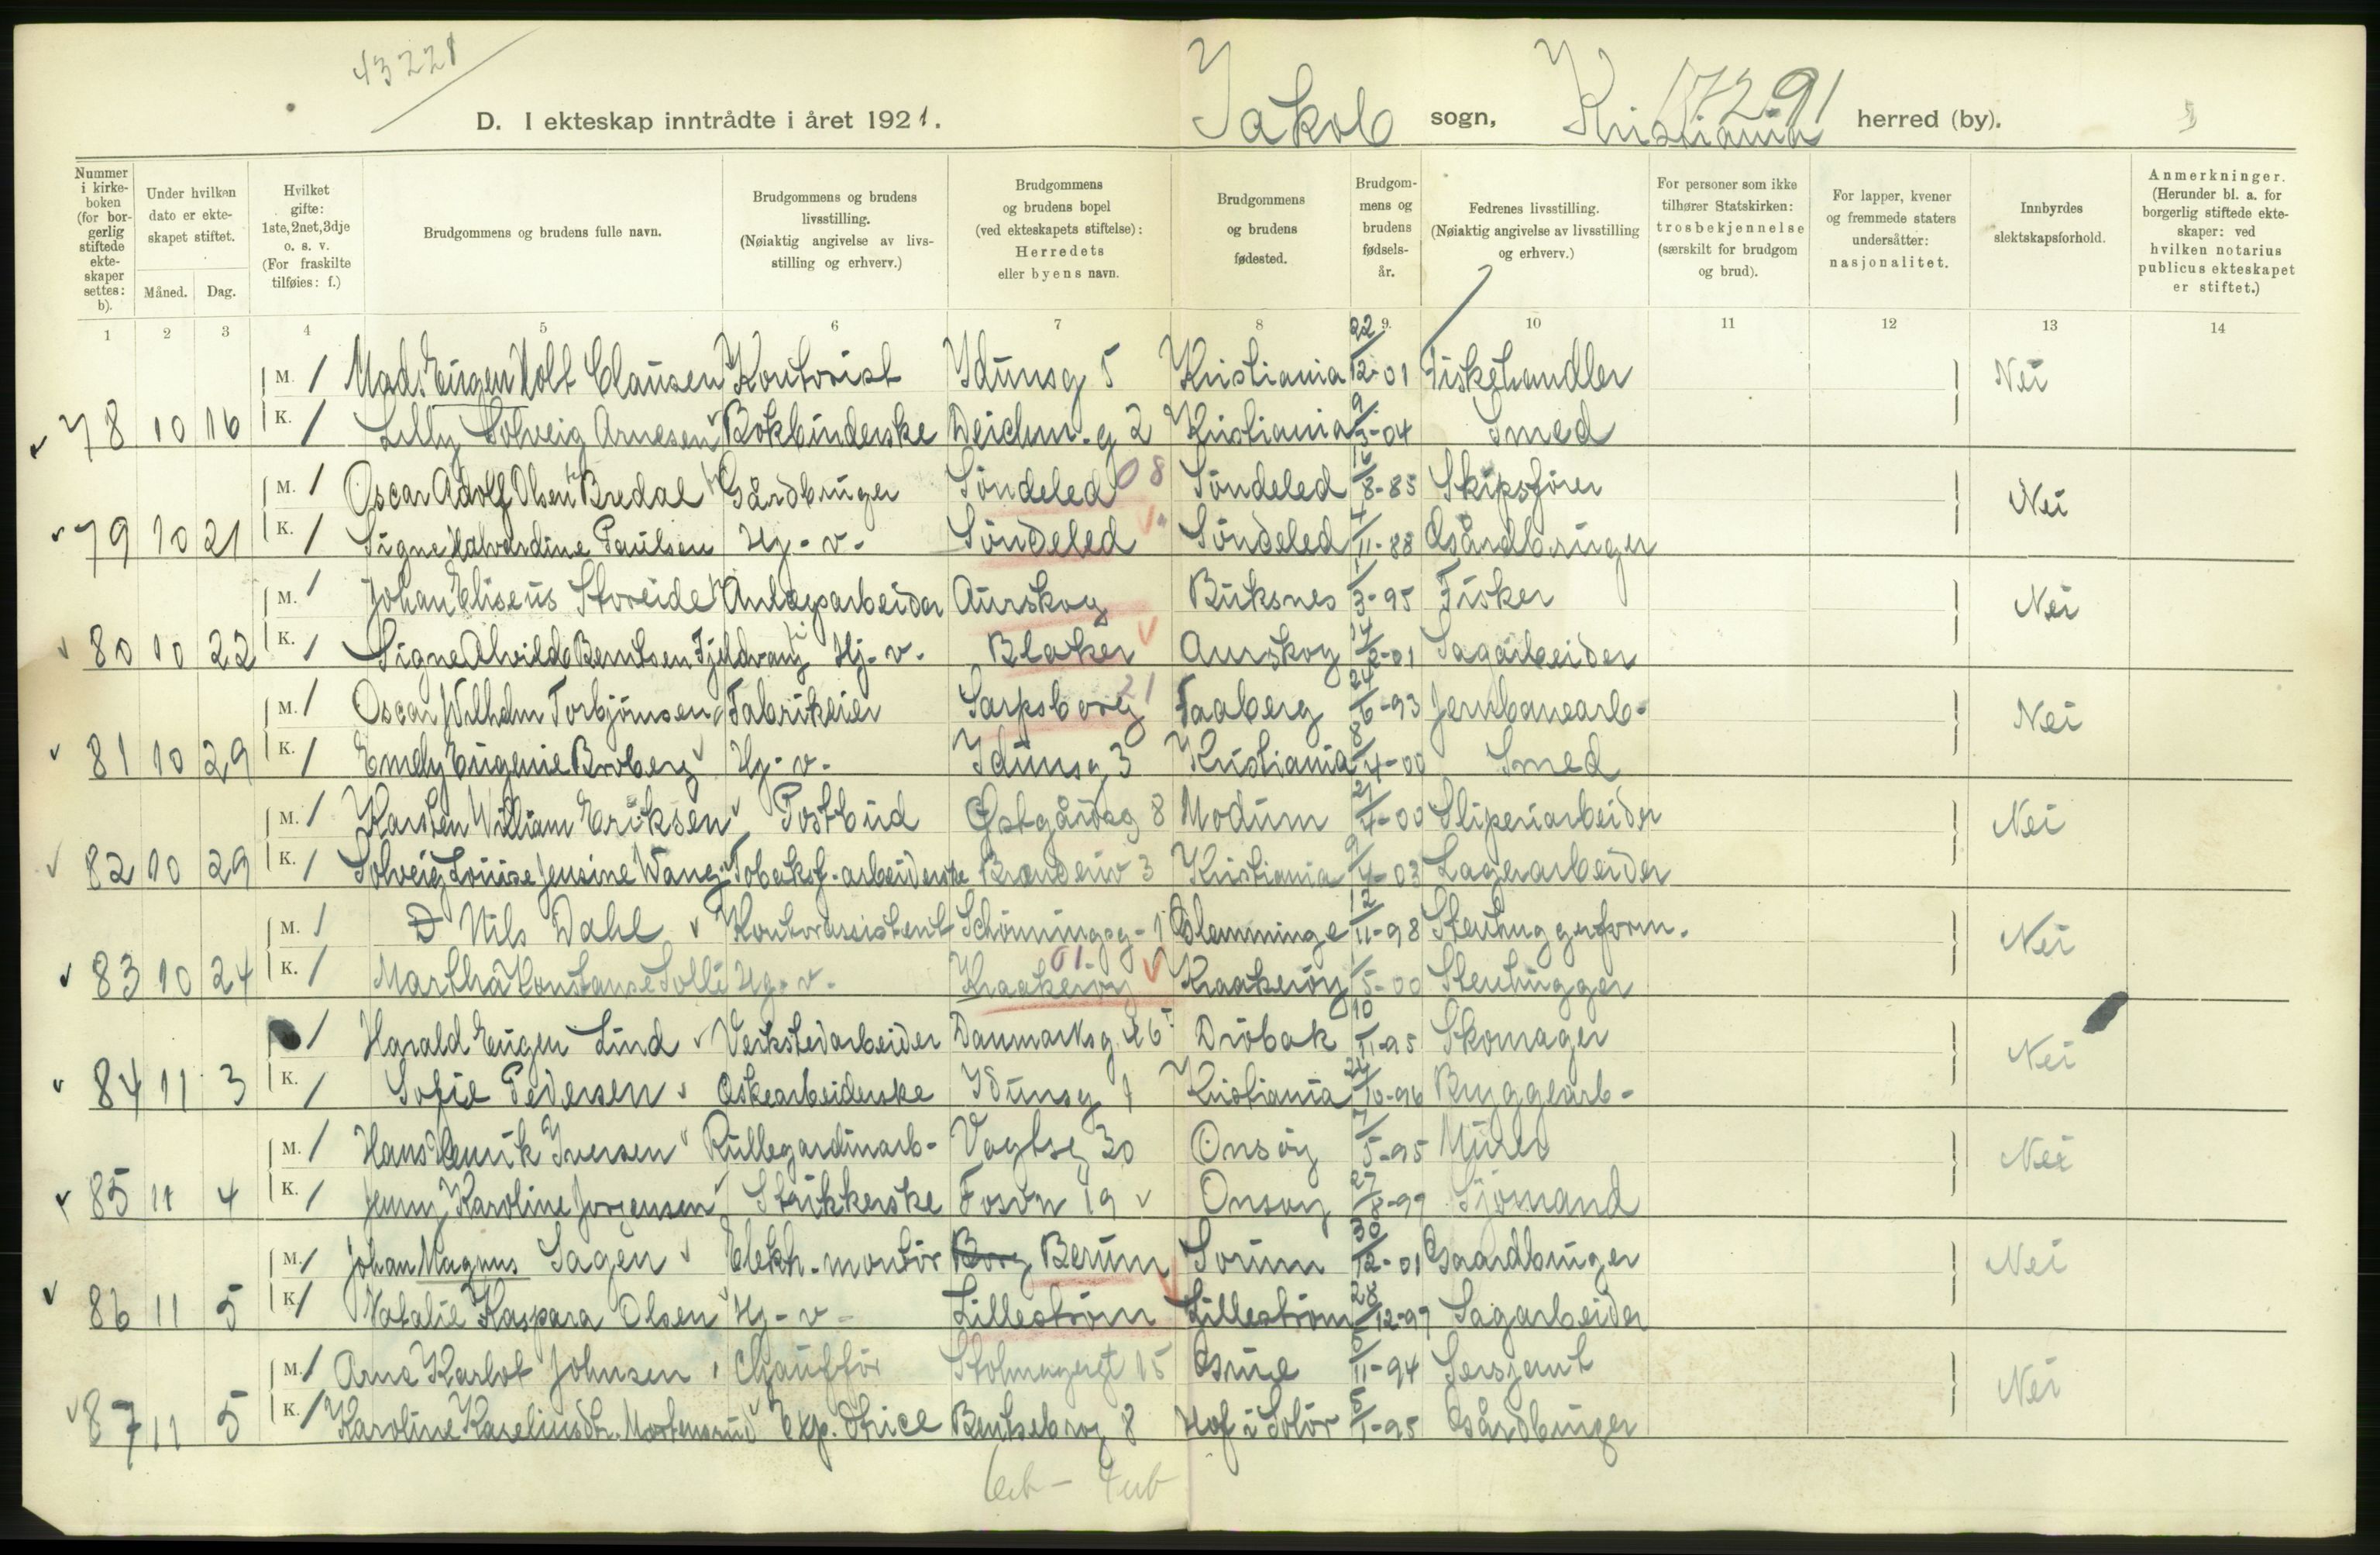 43221
D. I ekteskap inntrådte i året 1921. Jakob sogn, Kristiania herred (by).
17291
Nummer i kirkeboken (for borgerlig stiftede ekteskaper settes: b).
Under hvilken dato er ekteskapet stiftet.
Måned. Dag.
Hvilket gifte: 1ste, 2net, 3dje o. s. v. (For fraskilte tilføies: f.)
Brudgommens og brudens fulle navn.
Brudgommens og brudens livsstilling. (Nøiaktig angivelse av livsstilling og erhverv.)
Brudgommens og brudens bopel (ved ekteskapets stiftelse): Herredets eller byens navn.
Brudgommens og brudens fødested.
Brudgommens og brudens fødselsår.
Fedrenes livsstilling. (Nøiaktig angivelse av livsstilling og erhverv.)
For personer som ikke tilhører Statskirken: trosbekjennelse (særskilt for brudgom og brud).
For lapper, kvener og fremmede staters undersåtter: nasjonalitet.
Innbyrdes slektskapsforhold.
Anmerkninger. (Herunder bl. a. for borgerlig stiftede ekteskaper: ved hvilken notarius publicus ekteskapet er stiftet.)
1 2 3 4 5 6 7 8 9. 10 11 12 13 14
M. 1 Mads Eugen Holt Clausen Kontorist Idunsg 5 Kristiania 22/12-01 Fiskehandler Nei
78 10 16 K. 1 Lilly Solveig Arnesen Bokbinderske Deichm.g 2 Kristiania 9/3-04 Smed
M. 1 Oscar Adolf Olsen Bredal Gårdbruger Söndeled 08 Söndeled 16/8-85 Skipsfører Nei
79 10 21 K. 1 Signe Halvardine Paulsen Hj-v- Söndeled Söndeled 4/11-88 Gårdbruger
M. 1 Johan Eliseus Storeide Anlegsarbeider Aurskog Buksnes 1/3-95 Fisker Nei
80 10 22 K. 1 Signe Alvilde Berntsen Fjeldvang Hj-v. Blaker Aurskog 14/2-01 Sagarbeider
M. 1 Oscar Wilhelm Torbjörnsen Fabrikeier Sarpsborg 21 Faaberg 24/6-93 Jernbanearb- Nei
81 10 29 K. 1 Emely Eugenie Broberg Hj-v- Idunsg 3 Kristiania 8/4-00 Smed
M. 1 Karsten William Eriksen Postbud Østgårdsg 8 Modum 21/4-00 Sliperiarbeider Nei
82 10 29 K. 1 Solveig Louise Jensine Wang Tobaksf.arbeiderske Brænderiv 3 Kristiania 9/4-03 Lagerarbeider
M. 1 Nils Dahl Kontorassistent Schönningsg-1 Glemminge 12/11-98 Stenhuggerform. Nei
83 10 24 K. 1 Martha Konstanse Solli Hj-v- Kraakeröy 01 Kraakeröy 1/5-00 Stenhugger
1 Harald Eugen Lind Verkstedarbeider Danmarksg. 46 Dröbak 10/11-95 Skomager Nei
84 11 3 K. 1 Sofie Pedersen Eskearbeiderske Idunsg 1 Kristiania 22/10-96 Bryggearb-
M. 1 Hans Henrik Iversen Rullegardinarb- Vogtsg 30 Onsöy 7/5-95 Murer Nei
85 11 4 K. 1 Jenny Karoline Jorgensen Strikkerske Fosvn 19 Onsöy 27/8-97 Sjömand
M. 1 Johan Magnus Sagen Elektr.montör Berum Sorum 30/12-01 Gaardbruger Nei
86 11 5 K 1 Natalie Kaspara Olsen Hj-v- Lilleström Lilleström 28/12-97 Sagarbeider
M 1 Arne Karlot Johnsen Chauffør Stolmagergt 15 Grue 6/11-94 Sersjant Nei
87 11 5 K. 1 Karoline Kareliusdtr. Mortensrud Exp. Otrice Bentsebrog 8 Hof i Solör 5/1-95 Gårdbruger